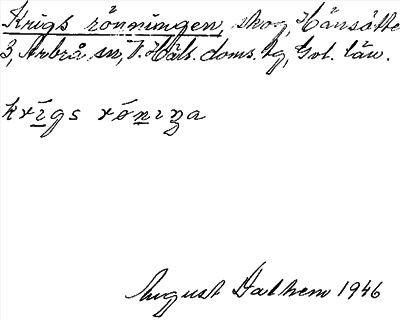 Krigs rönningen, skog, Hänsätte
3, Arbrå sn, V. Häls. doms. tg, Gvl. län.
krigs rönıŋa
August Dalhem 1946